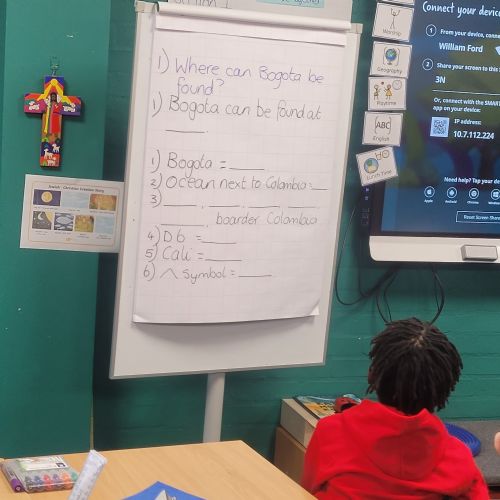 1) Where can Bogota be
found?
1) Bogota can be found at
____.
1) Bogota = ____
2) Ocean next to Colombia = __
3) ____, ____, ____
____, boarder Colombia
4) D6 = ____
5) Cali = ____
6) ^ Symbol = ____
Jewish - Christian Creation Story
Worship
Geography
Playtime
ABC
English
Lunch Time
Connect your device
1 From your device, conne
William Ford
2 Share your screen to this
3N
Or, connect with the SMAR
app on your device:
IP address:
10.7.112.224
Need help? Tap your de
Apple
Android
Chrome
Window
Reset Screen Share